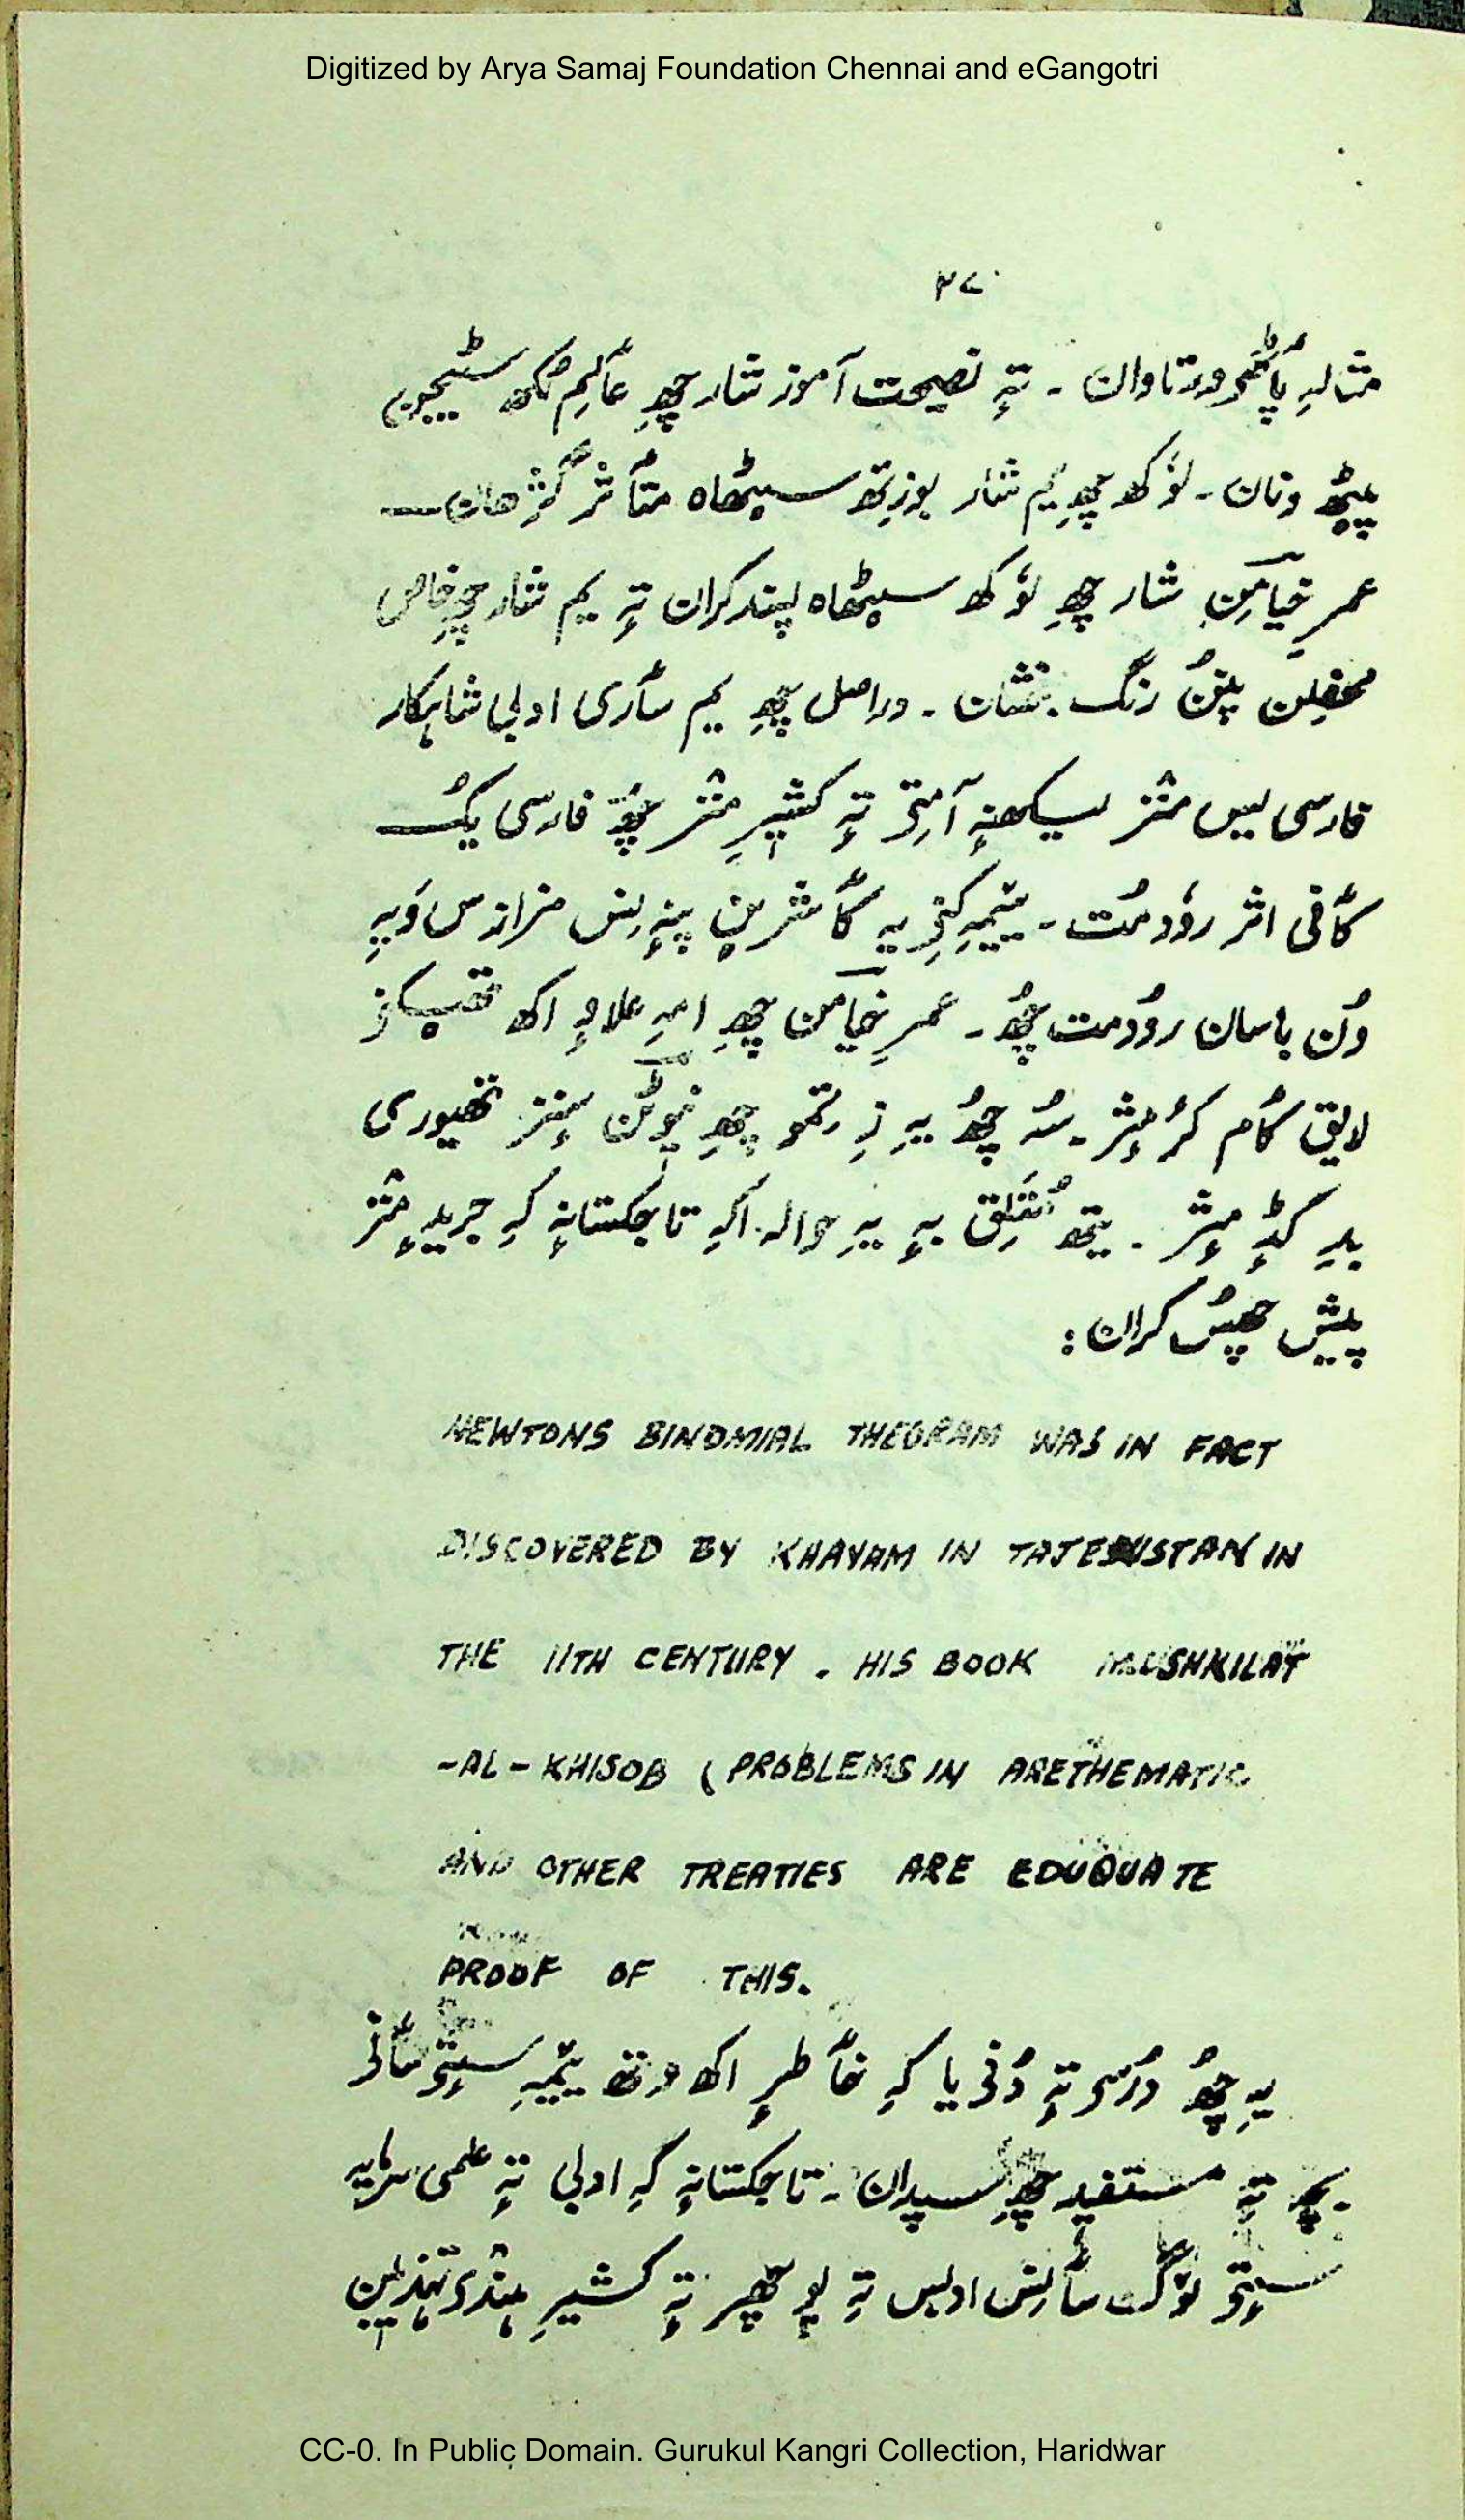 Digitized by Arya Samaj Foundation Chennai and eGangotri
مثالہِ پٲٹھۍ ورتاوان ۔ تہٕ نصیحت آموز شار چھِ عٲلِم
پیٹھ ونان ۔ لوٗکھ چھِ یم شار بوزِتھ سیٹھاہ متٲثر گژھان
عمرِ خیامَن شار چھِ لوٗکھ سیٹھاہ پسند کران تہٕ یم شار چھِ خاص
محفلِن پنُن رنگ بخشان ۔ دراصل چھِ یم سٲری ادبی شاہکار
فارسی یس منٛز لیکھنہٕ آمتۍ تہٕ کشیٖرِ منٛز چھُ فارسی یُک
کٲفی اثر روٗدمُت ۔ یِمیہِ کنۍ یہِ کٲشرین پننِس
وُن باسان روٗدمت چھُ ۔ عمرِ خیامن چھِ امہِ علاوٕ اکھ
لایق کٲم کرٕمٕژ ۔ سُہ چھُ یہِ زِ تمو چھِ نیوٹن سٕنٛز تھیوری
بدِ کڈٕمٕژ ۔ یتھ مُتَلِق بہٕ یہِ حوالہ اکہِ تاجکستانٕ کہِ جریدٕ منٛز
پیش چھُس کران :
NEWTONS BINOMIAL THEORAM WAS IN FACT
DISCOVERED BY KHAYAM IN IN
THE 11TH CENTURY . HIS BOOK MUSHKILAT
-AL-KHISOB ( PROBLEMS IN ARETHEMATIC
AND OTHER TREATIES ARE EDUQUATE
PROOF OF THIS.
یہِ چھُ دُرُس تہٕ دُنی یا کہِ خٲطرٕ اکھ یِمیہِ سٟتۍ سٲنی
تہٕ مستفید چھِ سپدان ۔ تاجکستانٕ کہِ ادبی تہٕ علمی سرمایہِ
سٟتۍ لوٗگ سٲنِس ادبس تہٕ تہٕ کشیرِ ہنٛدۍ تہذیبن
CC-0. In Public Domain. Gurukul Kangri Collection, Haridwar